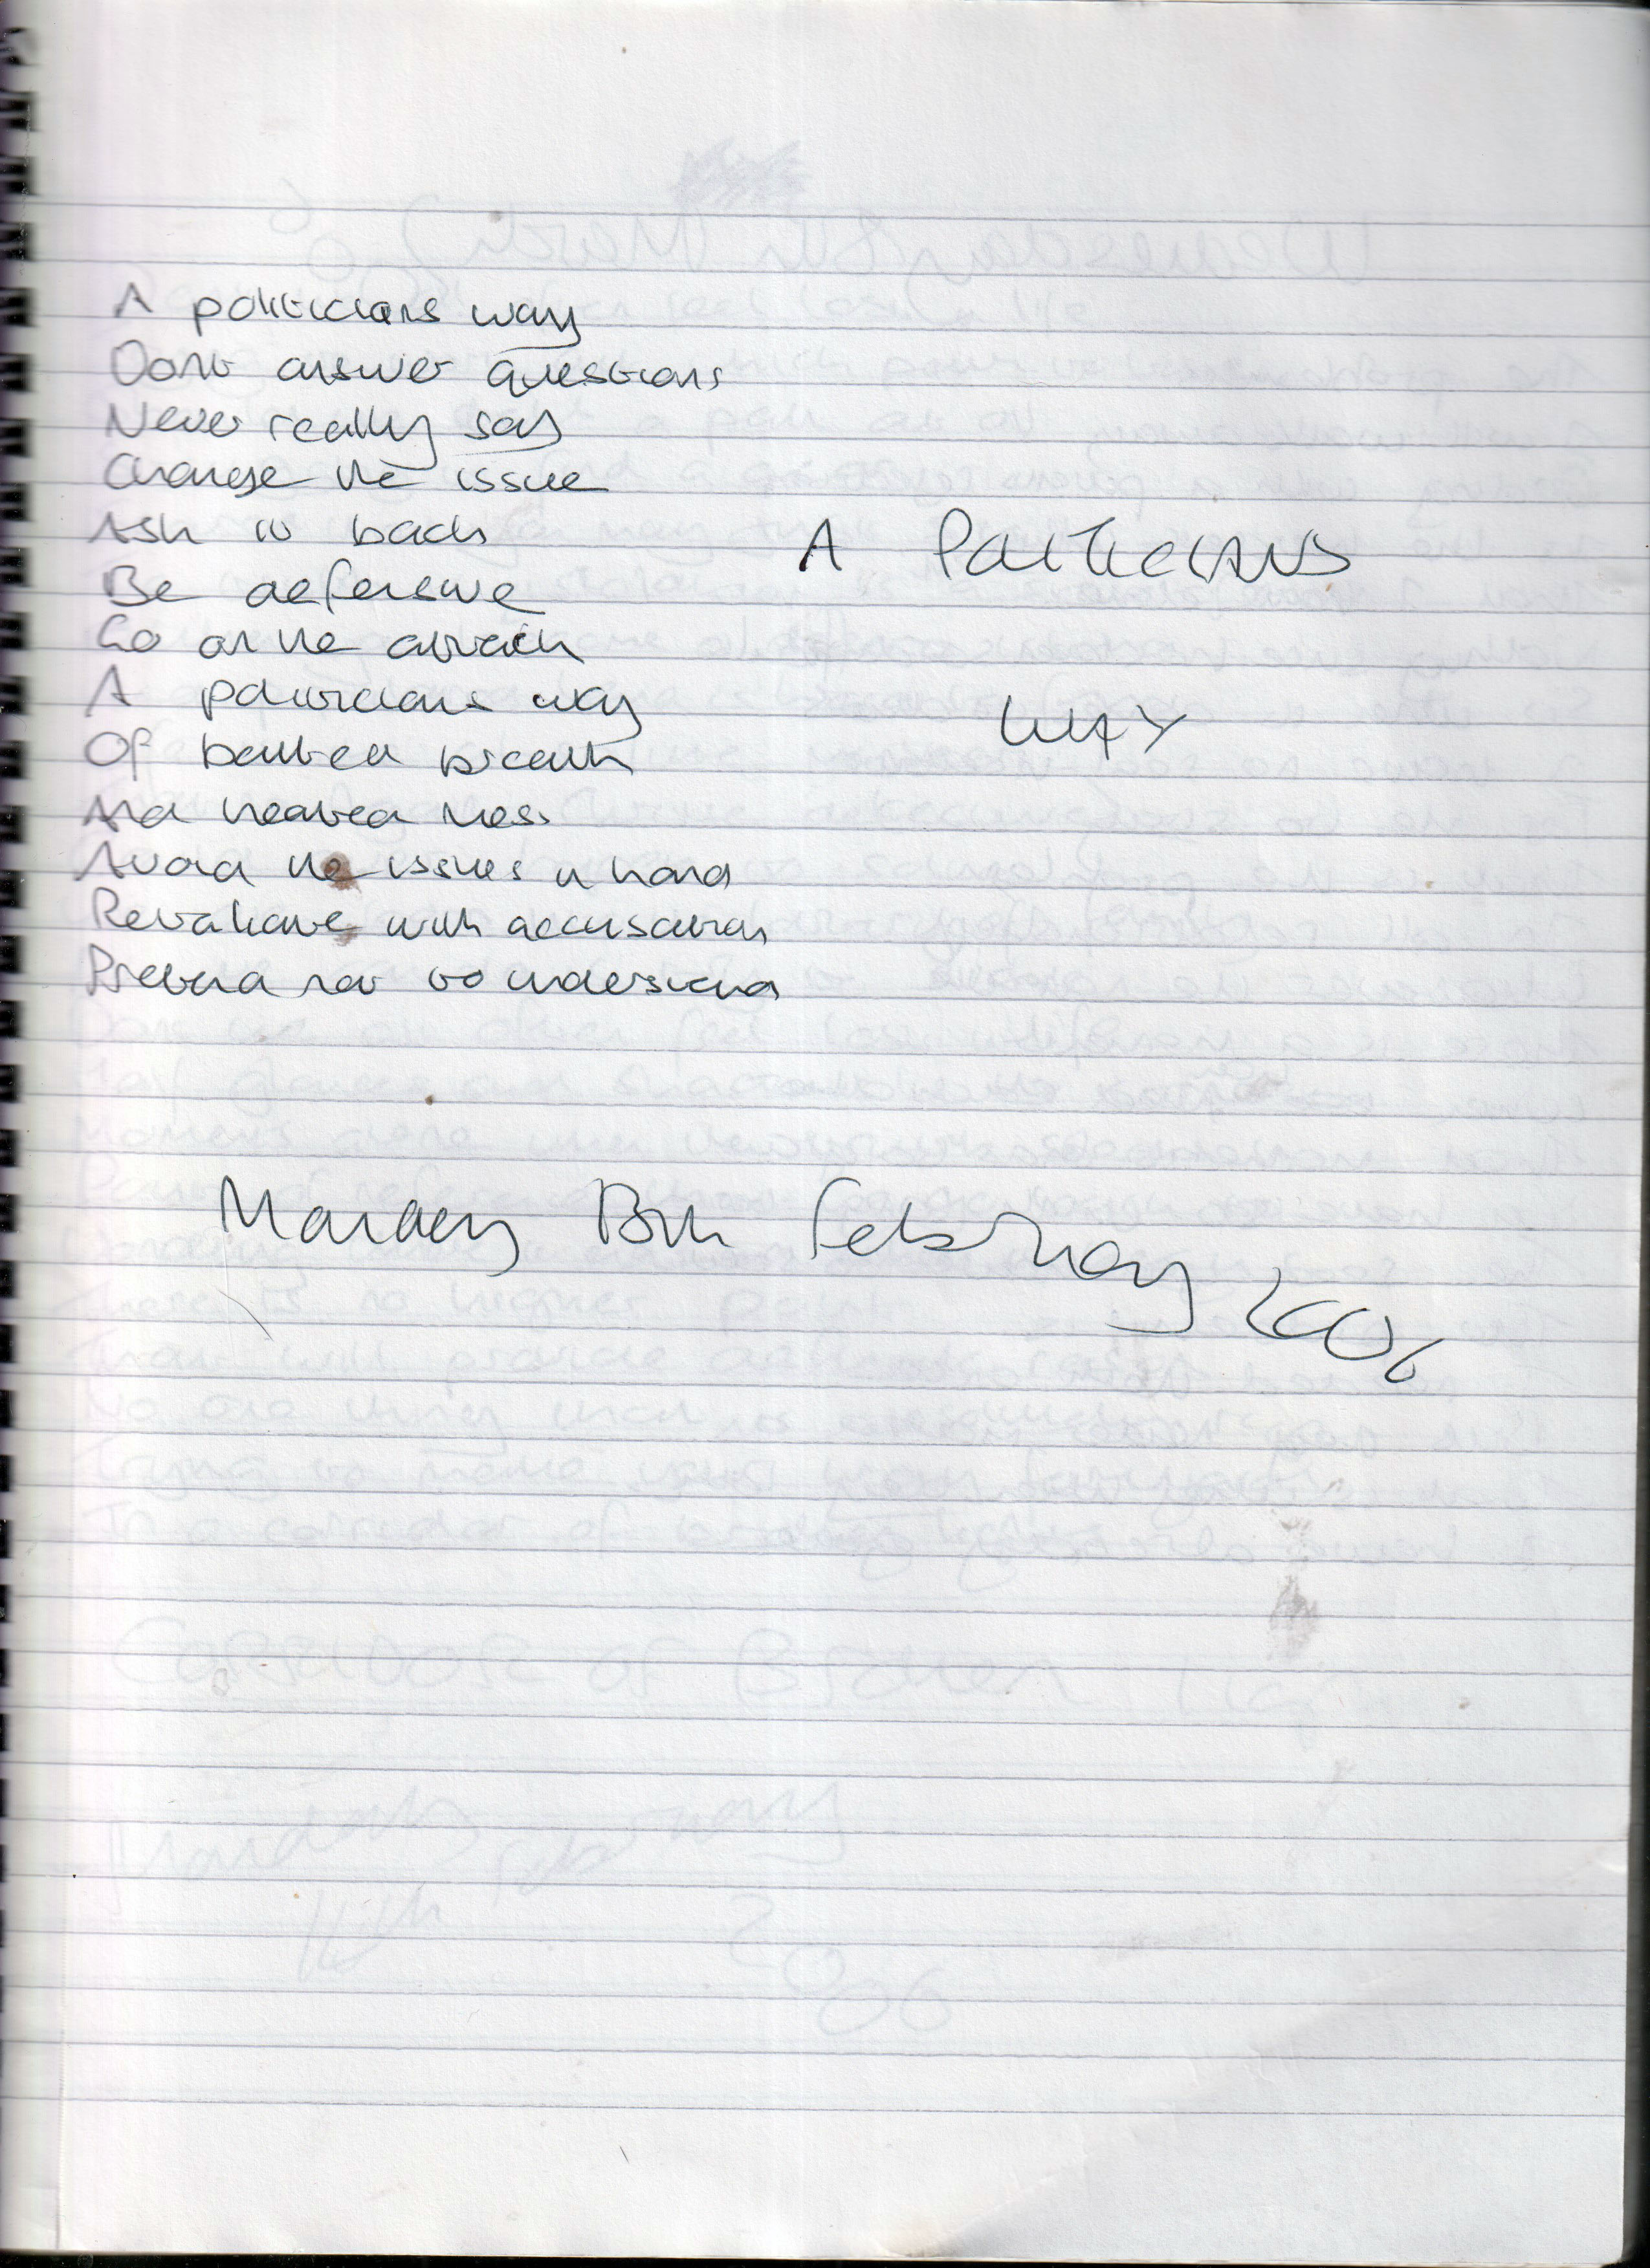 A politicians way
Dont answer questions
Never really say
Change the issue
Ask it back
Be defensive
Go on the attack
A politicians way
Of baited breath
And heated
Avoid the issues in hand
Retaliate with accusation
Pretend not to understand
A Politicians
WAY
Monday 13th February 2006